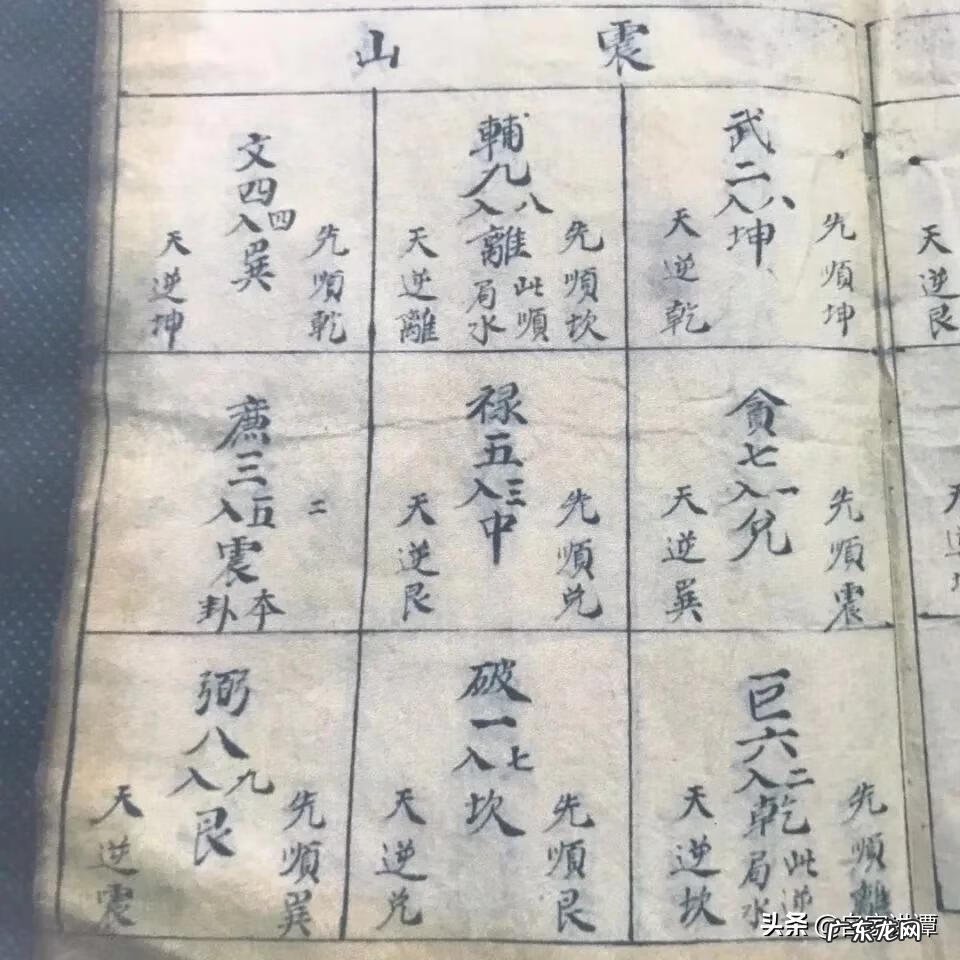 震山
先順坤
武二八入坤
天逆乾
先順坎
輔九八入離
此順
局水
天逆離
先順乾
文四四入巽
天逆坤
先順震
貪七一入兌
天逆巽
先順兌
禄五三入中
天逆艮
二
廉三五入震
本卦
先順離
巨六二入乾
此逆
局水
天逆坎
先順艮
破一七入坎
天逆兌
先順巽
弼八九入艮
天逆震
天逆艮
头条
广东龙网